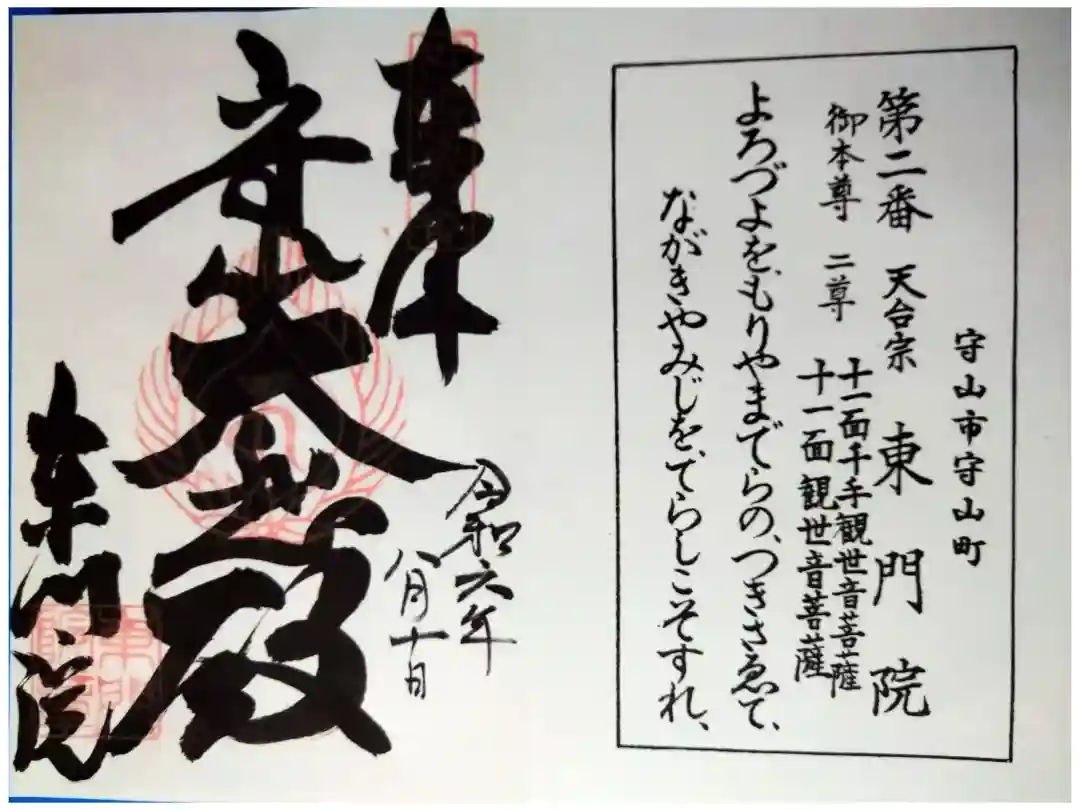 守山市守山町
第二番 天台宗 東門院
御本尊 二尊 十一面千手観世音菩薩
十一面観世音菩薩
よろづよを、もりやまでらの、つきさゑて、
ながきやみじを、てらしこそすれ、
奉拝
守山大悲殿
令和六年
八月十日
東門院